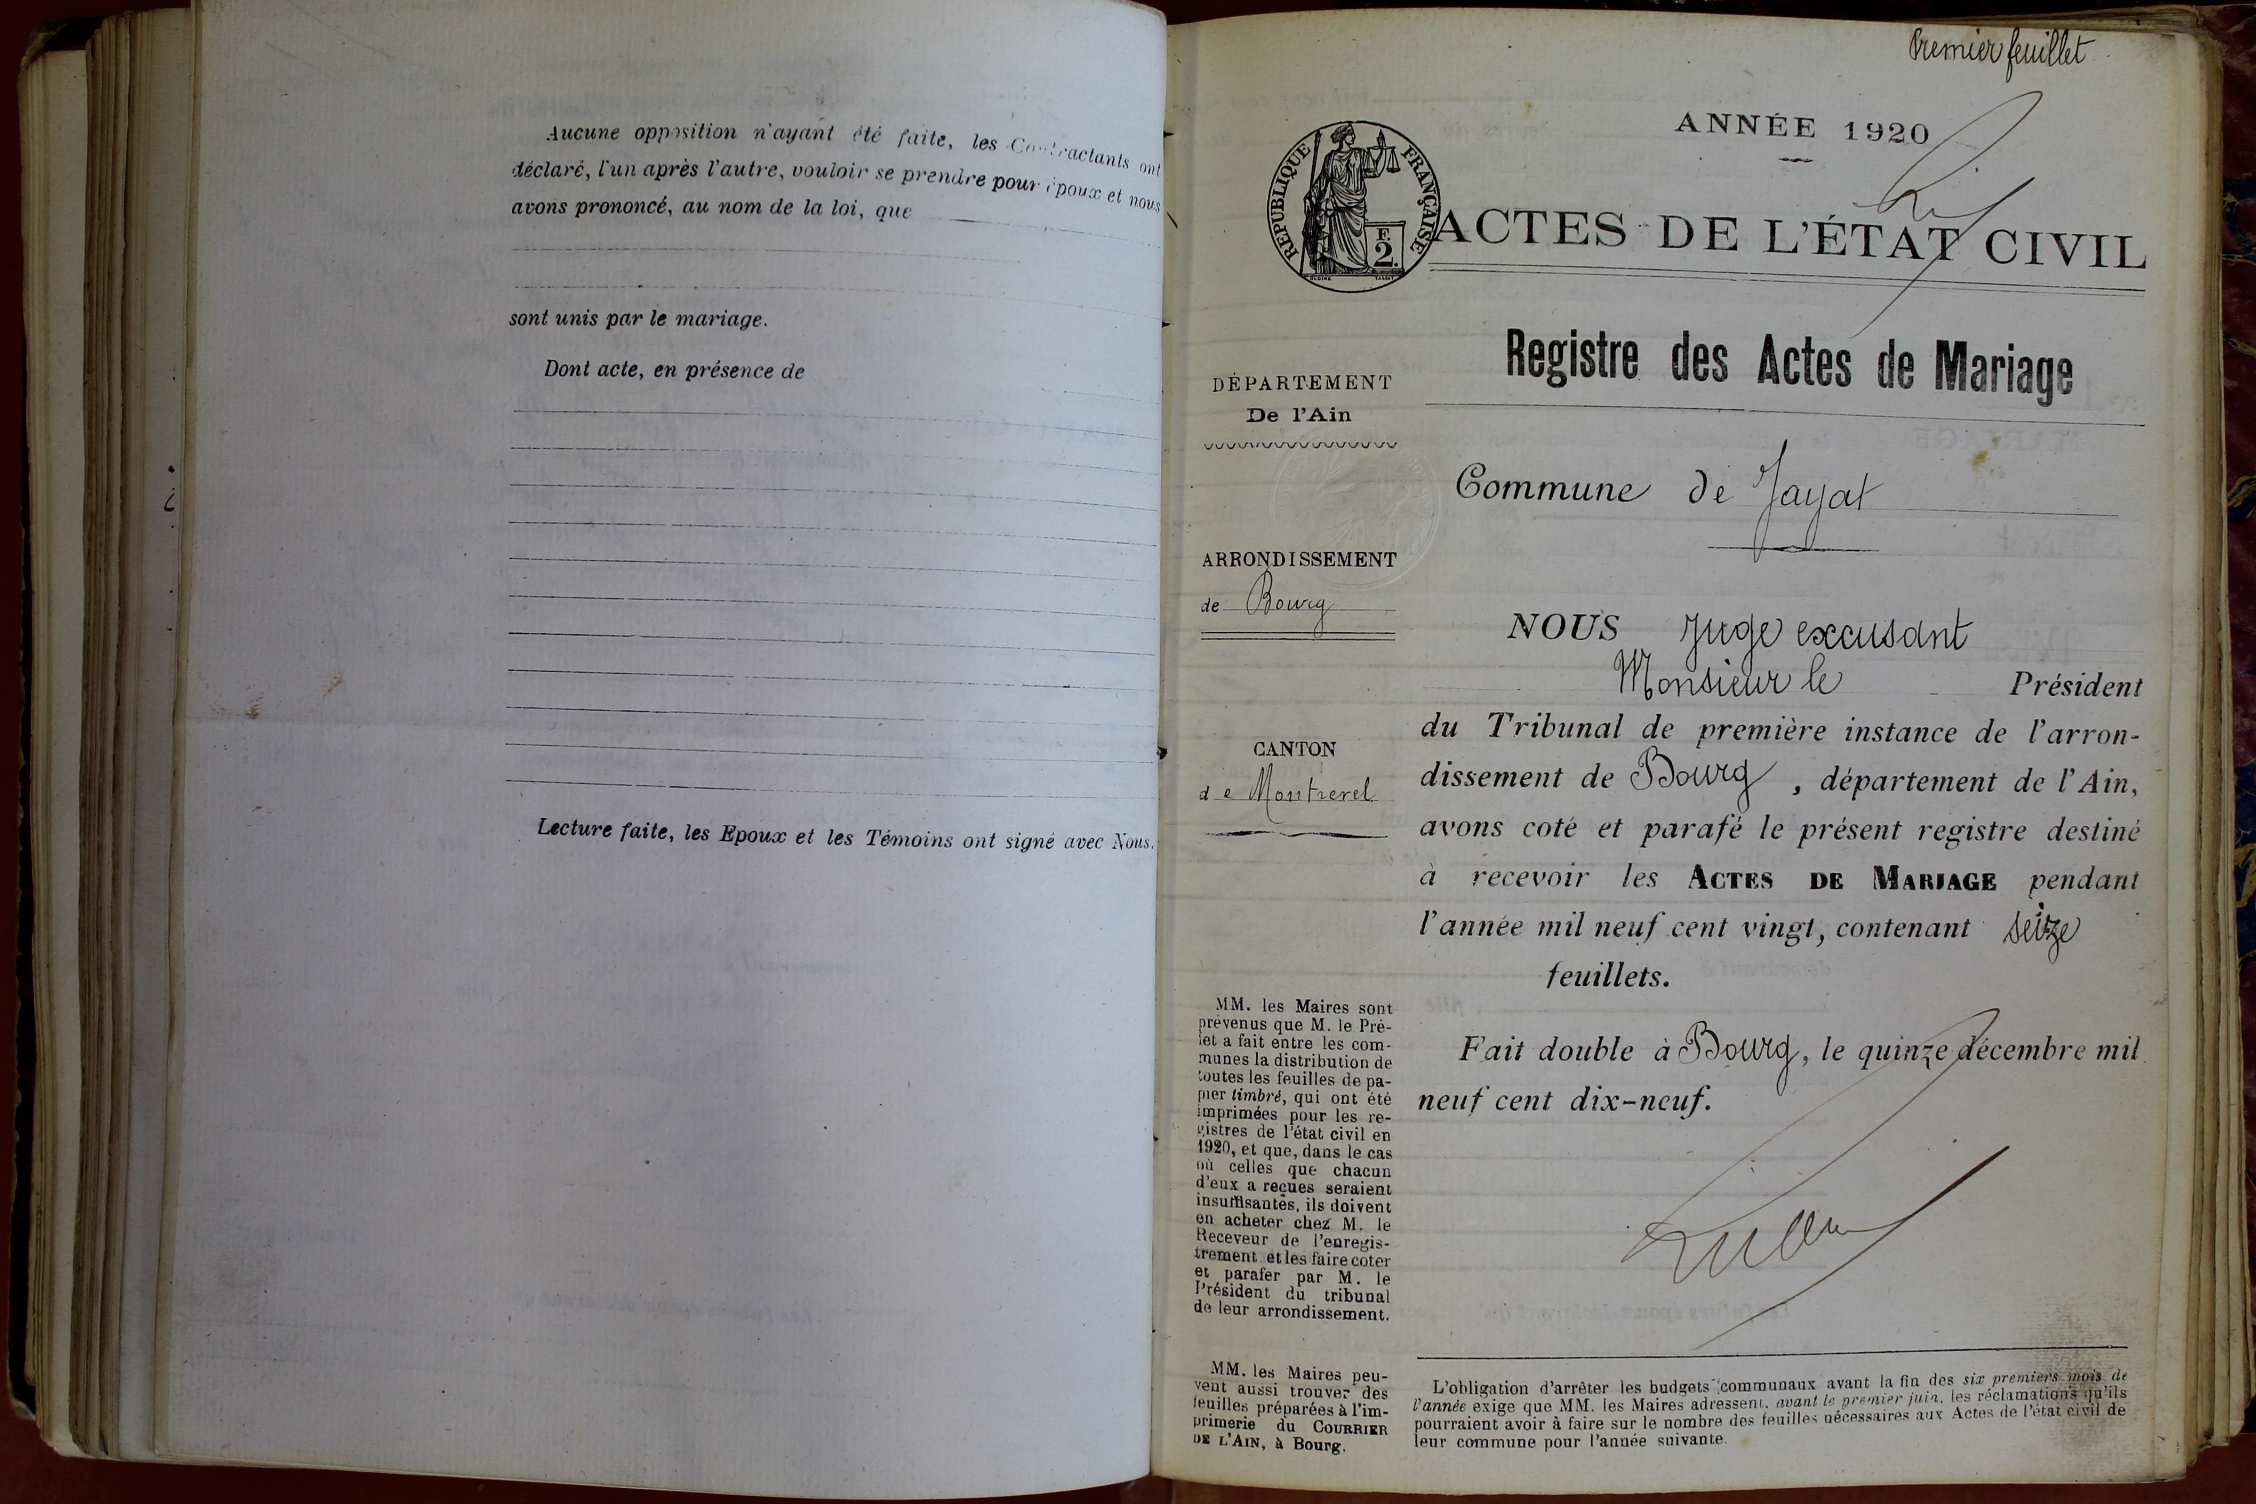 Aucune opposition n'ayant été faite, les Contractants ont
déclaré, l'un après l'autre, vouloir se prendre pour époux et nous
avons prononcé, au nom de la loi, que
sont unis par le mariage.
Dont acte, en présence de
Lecture faite, les Epoux et les Témoins ont signé avec Nous.
Premier feuillet
ANNÉE 1920
RÉPUBLIQUE FRANÇAISE
F.
2.
ACTES DE L'ÉTAT CIVIL
Registre des Actes de Mariage
DÉPARTEMENT
De l'Ain
Commune de Jayat
ARRONDISSEMENT
de Bourg
CANTON
de Montrevel
NOUS Juge excusant
Monsieur le Président
du Tribunal de première instance de l'arron-
dissement de Bourg, département de l'Ain,
avons coté et parafé le présent registre destiné
à recevoir les ACTES DE MARIAGE pendant
l'année mil neuf cent vingt, contenant seize
feuillets.
Fait double à Bourg, le quinze décembre mil
neuf cent dix-neuf.
MM. les Maires sont
prévenus que M. le Pré-
fet a fait entre les com-
munes la distribution de
toutes les feuilles de pa-
pier timbré, qui ont été
imprimées pour les re-
gistres de l'état civil en
1920, et que, dans le cas
où celles que chacun
d'eux a reçues seraient
insuffisantes, ils doivent
en acheter chez M. le
Receveur de l'enregis-
trement et les faire coter
et parafer par M. le
Président du tribunal
de leur arrondissement.
MM. les Maires peu-
vent aussi trouver des
feuilles préparées à l'im-
primerie du COURRIER
DE L'AIN, à Bourg.
L'obligation d'arrêter les budgets communaux avant la fin des six premiers mois de
l'année exige que MM. les Maires adressent, avant le premier juin, les réclamations qu'ils
pourraient avoir à faire sur le nombre des feuilles nécessaires aux Actes de l'état civil de
leur commune pour l'année suivante.